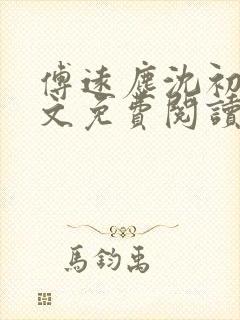 傅遠塵沈初
文免費閱讀
馬鈞禹